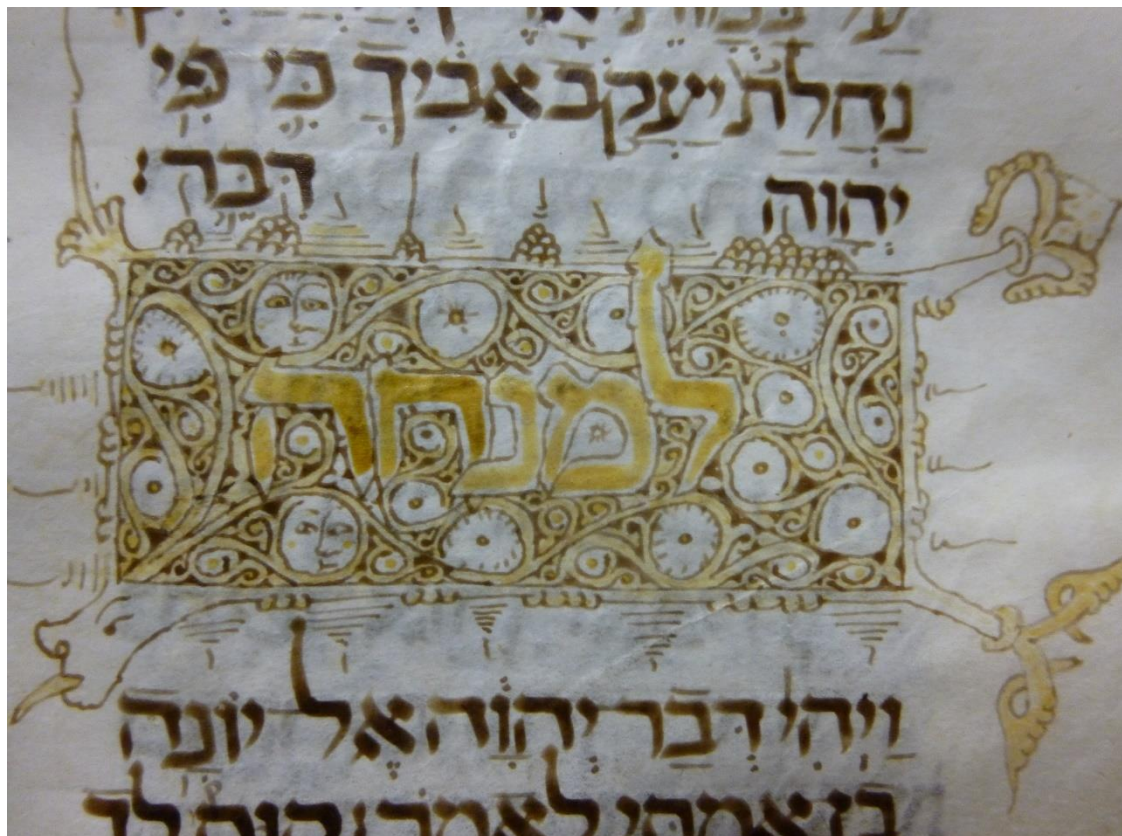 עַל בָּמוֹתֵי
נַחֲלַת יַעֲקֹב אָבִיךָ כִּי פִּי
יְהוָה דִּבֵּר׃
למנחה
וַיְהִי דְּבַר יְהוָה אֶל יוֹנָה
בֶן אֲמִתַּי לֵאמֹר׃ קוּם לֵךְ